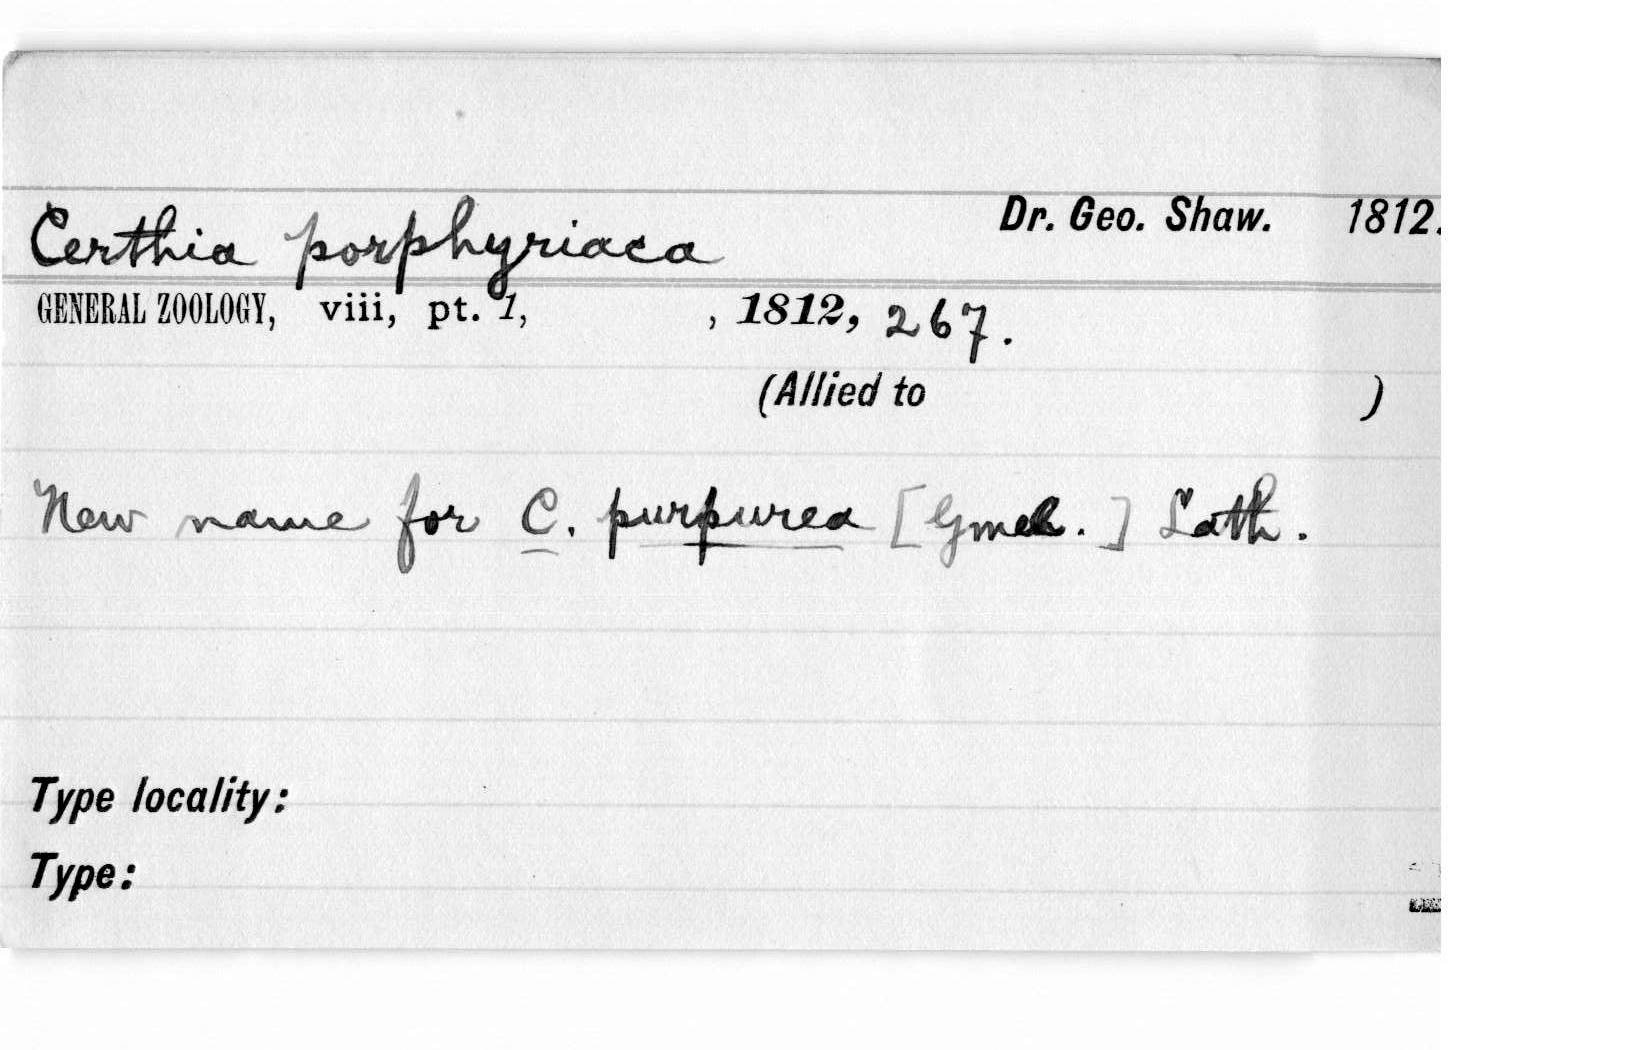 Certhia porphyriaca Dr. Geo. Shaw. 1812.
GENERAL ZOOLOGY, viii, pt. 1, , 1812, 267.
(Allied to )
New name for C. purpurea [Gmel.] Lath.
Type locality:
Type: